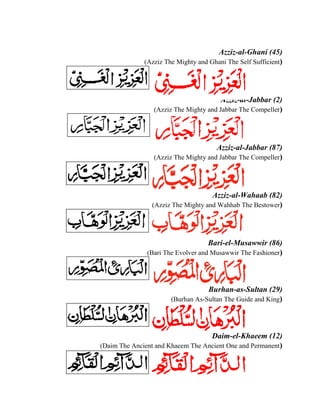 Azziz-al-Ghani (45)
(Azziz The Mighty and Ghani The Self Sufficient)
الْعَزِيْزِ الْغَــنِيُّ الْعَزِيْزِ الْغَــنِيُّ
Azziz-al-Jabbar (2)
(Azziz The Mighty and Jabbar The Compeller)
الْعَزِيْزِ الْجَبَّارِ الْعَزِيْزِ الْجَبَّارِ
Azziz-al-Jabbar (87)
(Azziz The Mighty and Jabbar The Compeller)
الْعَزِيْزِ الْجَبَّارِ الْعَزِيْزِ الْجَبَّارِ
Azziz-al-Wahaab (82)
(Azziz The Mighty and Wahhab The Bestower)
الْعَزِيْزِ الْوَهَّابِ الْعَزِيْزِ الْوَهَّابِ
Bari-el-Musawwir (86)
(Bari The Evolver and Musawwir The Fashioner)
الْبَارِئُ الْمُصَوِّرُ الْبَارِئُ الْمُصَوِّرُ
Burhan-as-Sultan (29)
(Burhan As-Sultan The Guide and King)
الْبُرْهَانِ السُّلْطَانِ الْبُرْهَانِ السُّلْطَانِ
Daim-el-Khaeem (12)
(Daim The Ancient and Khaeem The Ancient One and Permanent)
الدَّآئِمِ الْقَآئِمِ الدَّآئِمِ الْقَآئِمِ